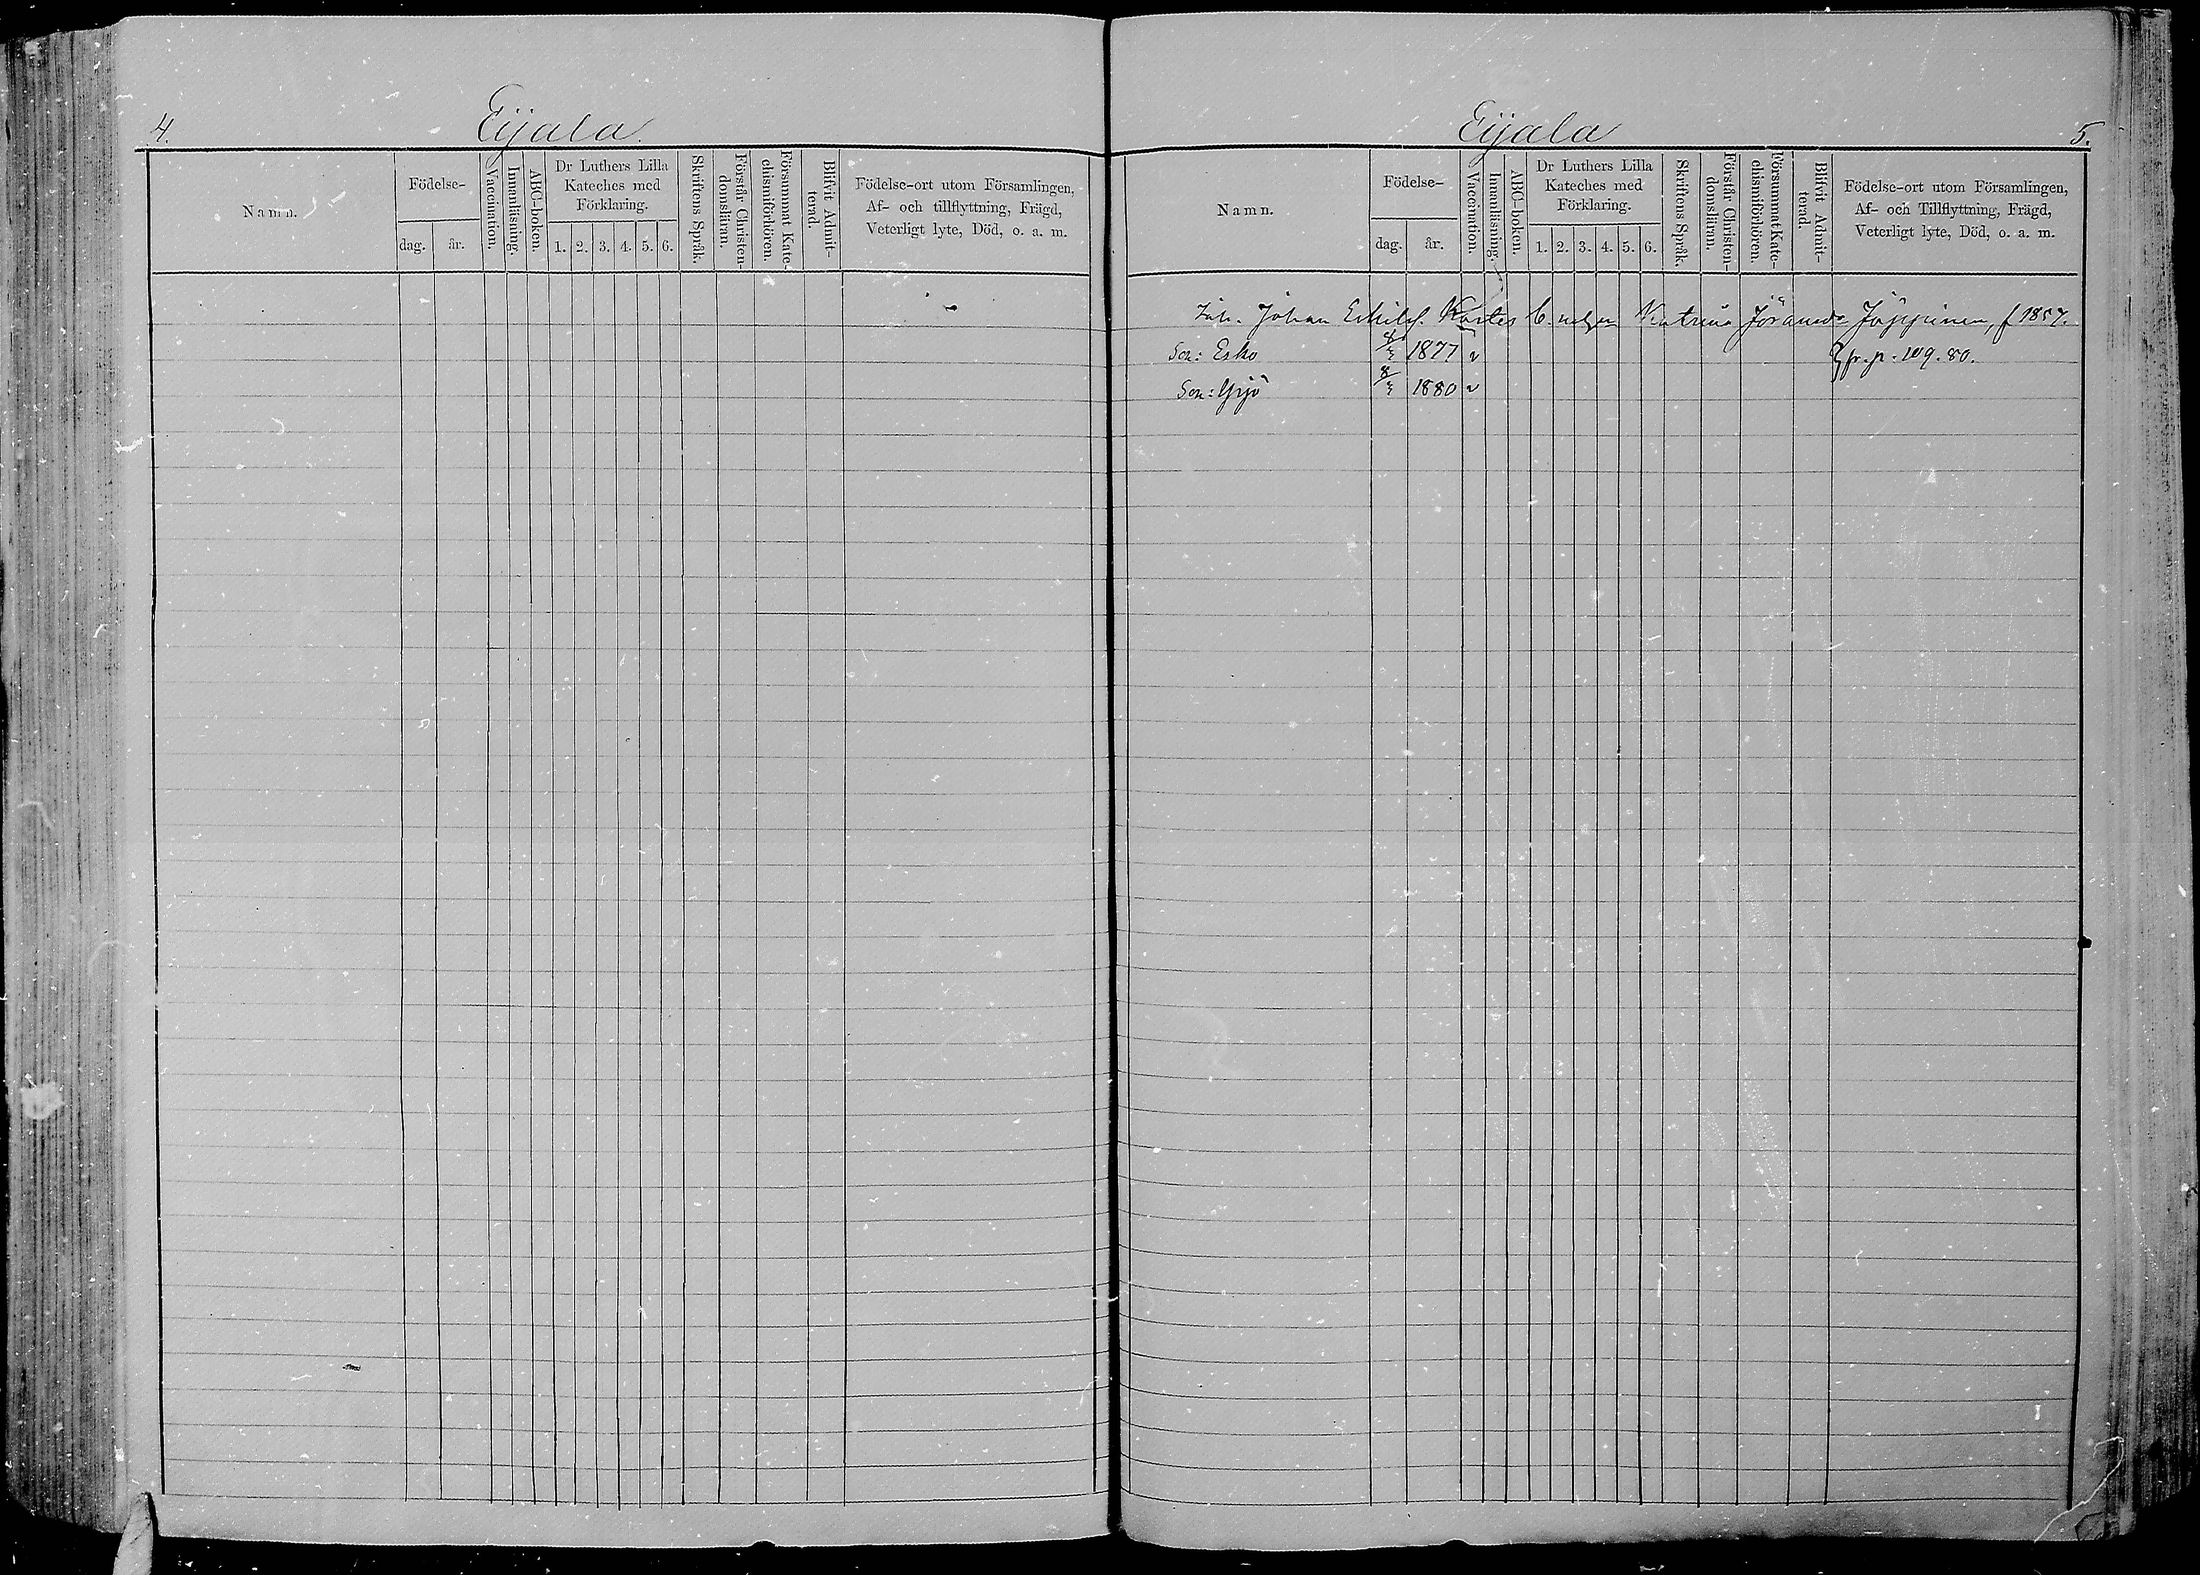 4.
Eijala.
Namn.
Födelse-
dag.
år.
Vaccination.
Innanläsning.
ABC-boken.
Dr Luthers Lilla
Kateches med
Förklaring.
1. 2. 3. 4. 5. 6.
Skriftens Språk.
Förstår Christen-
domsläran.
Försummat Kate-
chismiförhören.
Blifvit Admit-
terad.
Födelse-ort utom Församlingen,
Af- och tillflyttning, Frägd,
Veterligt lyte, Död, o. a. m.
Eijala
5.
Namn.
Födelse-
dag.
år.
Vaccination.
Innanläsning.
ABC-boken.
Dr Luthers Lilla
Kateches med
Förklaring.
1. 2. 3. 4. 5. 6.
Skriftens Språk.
Förstår Christen-
domsläran.
Försummat Kate-
chismiförhören.
Blifvit Admit-
terad.
Födelse-ort utom Församlingen,
Af- och Tillflyttning, Frägd,
Veterligt lyte, Död, o. a. m.
Johan Eskilss. Katrina Jöransdr Jäppinen, f 1857.
Son: Esko 1877 v fr. p. 109. 80.
Son: Yrjö 1880 v